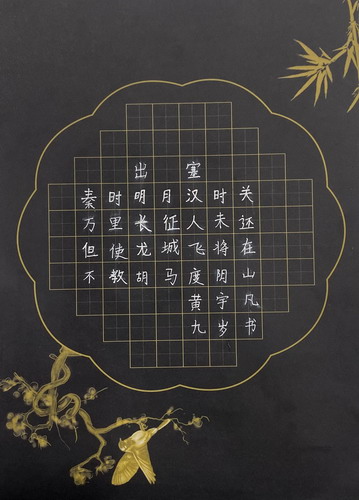 出塞
秦时明月汉时关
万里长征人未还
但使龙城飞将在
不教胡马度阴山
黄宇凡
九岁书